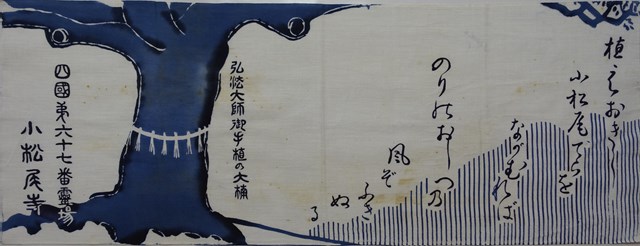 植えおきし
小松尾でらを
ながむれば
のりのおしへの
風ぞ
ふき
ぬ
る
弘法大師御手植の大楠
四國第六十七番靈場
小松尾寺